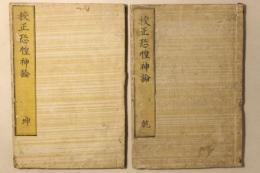 校正恐惶神論
乾
校正恐惶神論
坤